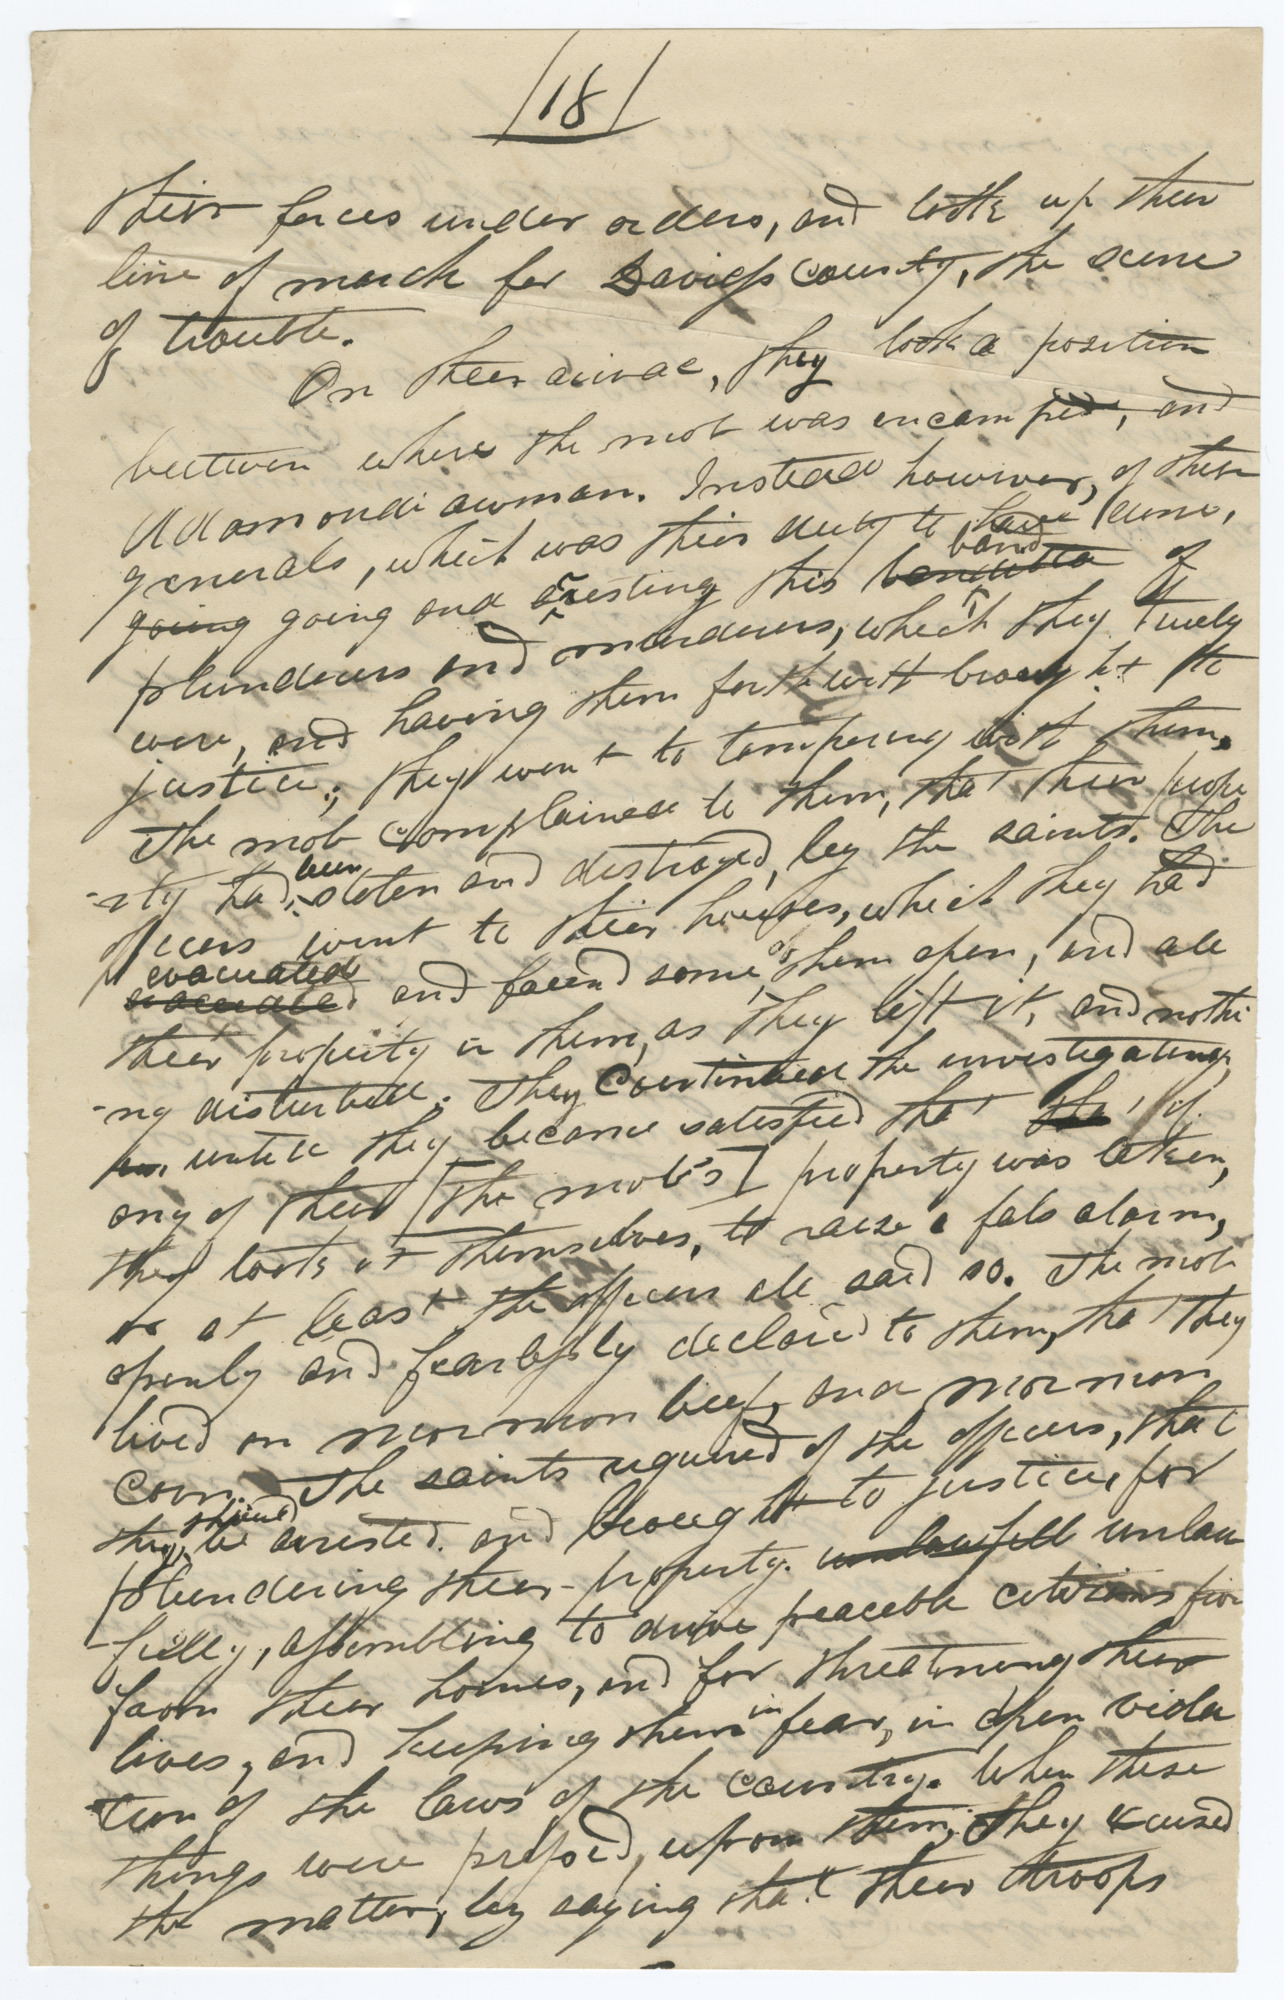 18
their forces under orders, and took up their
line of march for Daviess county, the scene
of trouble.
On their arival, they took a position
between where the mob was encamped, and
Adamondiawman. Instead however, of these
generals, which was their duty to have done,
going going and arresting this banditta band of
plunderers and murderers, which they truely
were, and having them forthwith brought to
justice; they went to tampering with them.
The mob complained to them, that their prope
-rty had been stolen and destroyed, by the saints. The
officers went to their houses, which they had
evacuated and found some of them open, and all
their property in them, as they left it, and nothi
-ng disturbed. They continued the investigating,
untill they became satisfied that if
any of their [the mob's] property was taken,
they took it themselves, to raise a fals alarm,
or at least the officers all said so. The mob
openly and fearlessly declared to them, that they
lived on mormon beef, and mormon
corn. The saints required of the officers, that
they should be arrested and brought to justice, for
plundering their property. unlawfull unlaw
-fully, assembling to drive peaceble citizens
from their homes, and for threatning their
lives, and keeping them in fear, in open viola
-tion of the laws of the country. When these
things were pressed, upon them, they excused
the matter, by saying that their troops